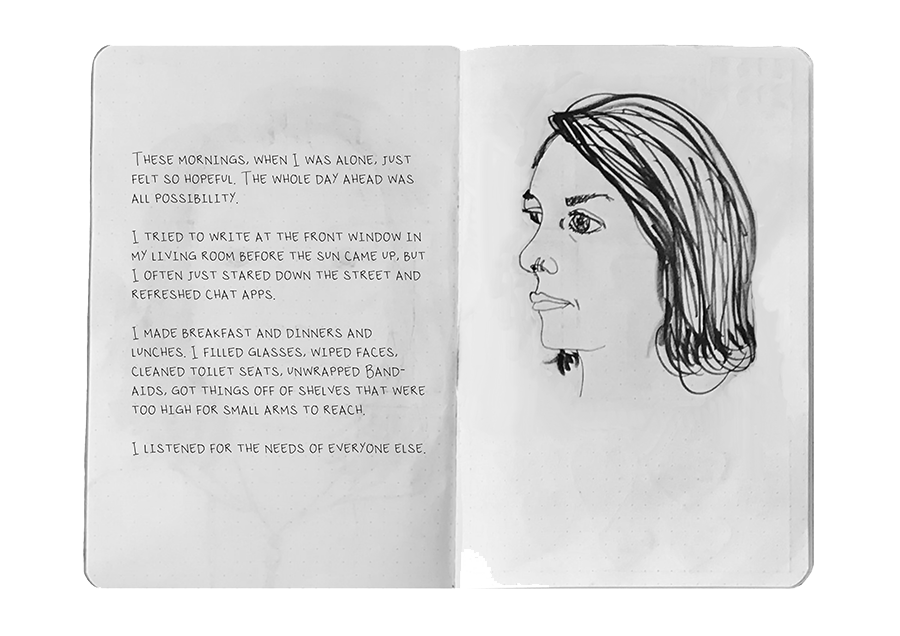 These mornings, when I was alone, just
felt so hopeful. The whole day ahead was
all possibility.
I tried to write at the front window in
my living room before the sun came up, but
I often just stared down the street and
refreshed chat apps.
I made breakfast and dinners and
lunches. I filled glasses, wiped faces,
cleaned toilet seats, unwrapped Band-
Aids, got things off of shelves that were
too high for small arms to reach.
I listened for the needs of everyone else.